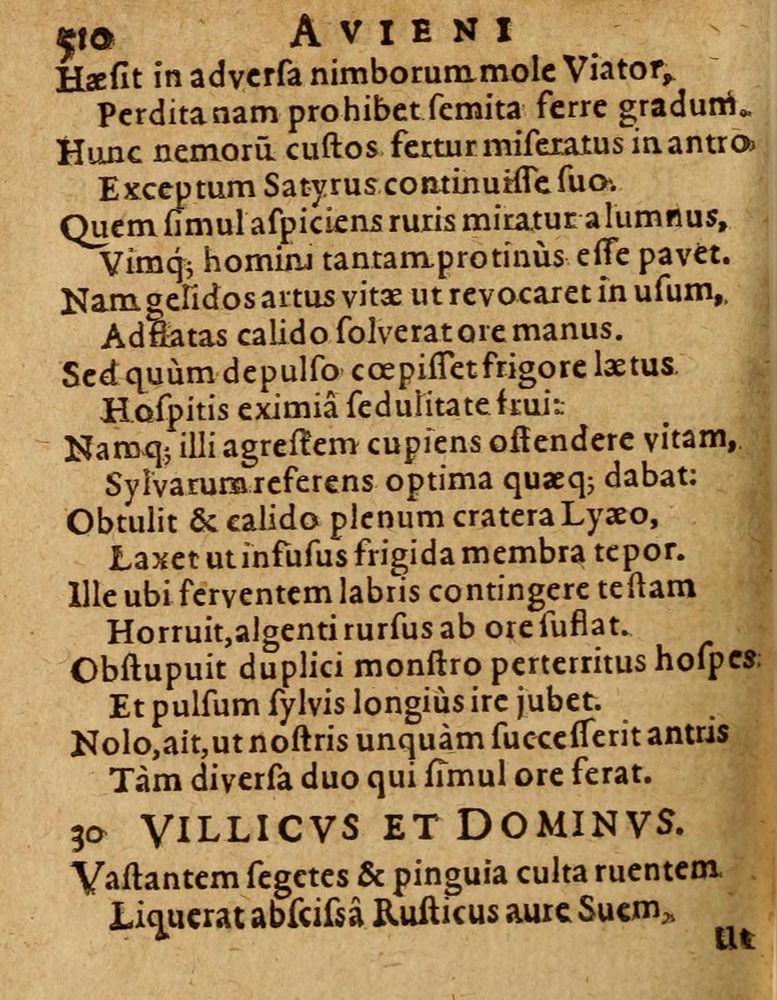 510 AVIENI
Hæſit in adverſa nimborum mole Viator,
Perdita nam prohibet ſemita ferre gradum.
Hunc nemorū cuſtos fertur miſeratus in antro
Exceptum Satyrus continuiſſe ſuo.
Quem ſimul aſpiciens ruris miratur alumnus,
Vimq; homini tantam protinùs eſſe pavet.
Nam gelidos artus vitæ ut revocaret in uſum,
Adflatas calido ſolverat ore manus.
Sed quùm depulſo cœpiſſet frigore lætus
Hoſpitis eximiâ ſedulitate frui:
Namq; illi agreſtem cupiens oſtendere vitam,
Sylvarum referens optima quæq; dabat:
Obtulit & calido plenum cratera Lyæo,
Laxet ut infuſus frigida membra tepor.
Ille ubi ferventem labris contingere teſtam
Horruit, algenti rurſus ab ore ſuflat.
Obſtupuit duplici monſtro perterritus hoſpes.
Et pulſum ſylvis longiùs ire jubet.
Nolo, ait, ut noſtris unquàm ſucceſſerit antris
Tàm diverſa duo qui ſimul ore ferat.
30 VILLICVS ET DOMINVS.
Vaſtantem ſegetes & pinguia culta ruentem
Liquerat abſciſsâ Ruſticus aure Suem,
Ut